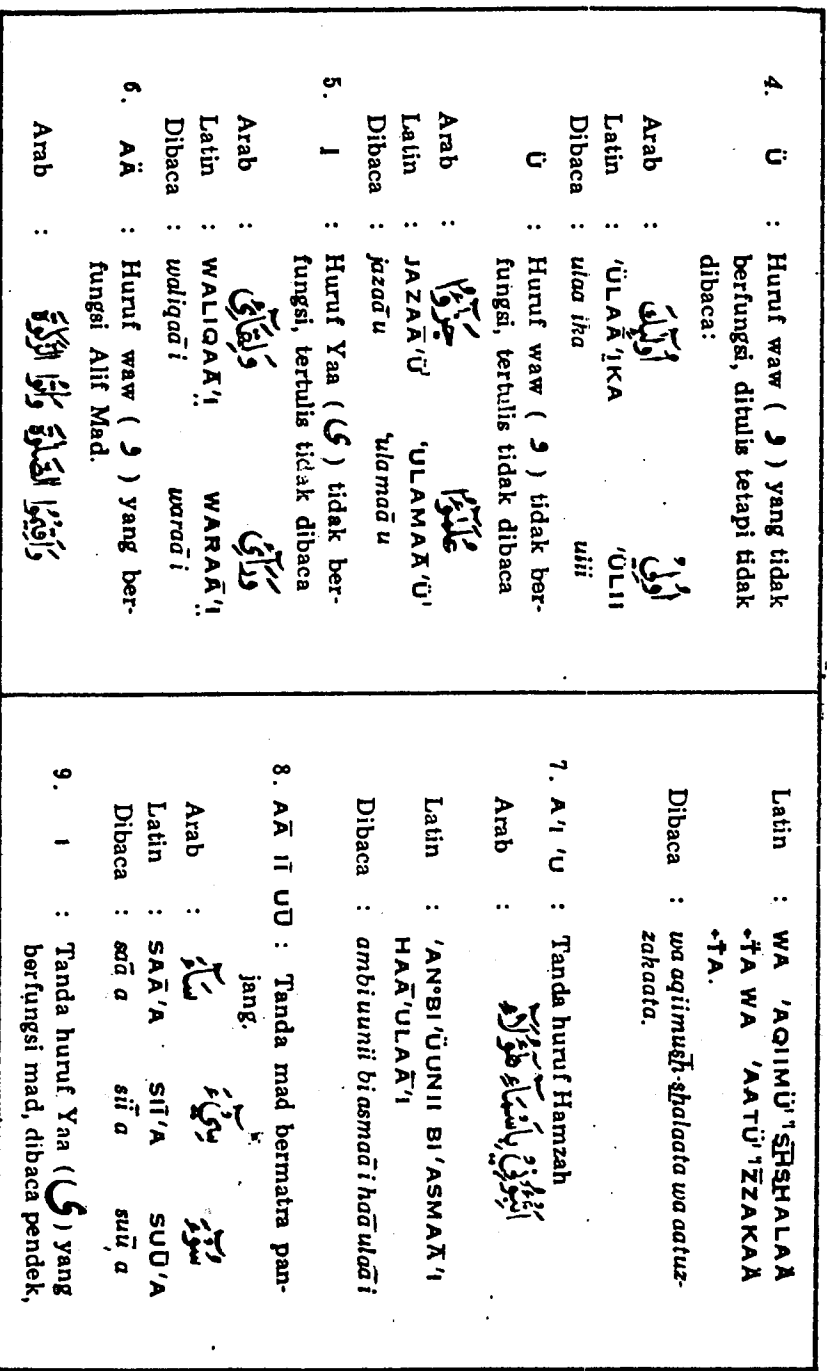 4. Ü : Huruf waw ( و ) yang tidak
berfungsi, ditulis tetapi tidak
dibaca:
Arab : أُولَٰٓئِكَ أُولِي
Latin : 'ÜLAĀ'IKA 'ÜLII
Dibaca : ulaa ika uiii
Ü : Huruf waw ( و ) tidak ber-
fungsi, tertulis tidak dibaca
Arab : جَزَآؤُا عُلَمَآؤُا
Latin : JAZAĀ'Ü' 'ULAMAĀ'Ü'
Dibaca : jazaā u 'ulamaā u
5. I : Huruf Yaa ( ي ) tidak ber-
fungsi, tertulis tidak dibaca
Arab : وَلِقَآئِ وَرَآئِ
Latin : WALIQAĀ'I WARAĀ'I
Dibaca : waliqaā i waraā i
6. AÄ : Huruf waw ( و ) yang ber-
fungsi Alif Mad.
Arab : وَأَقِيمُوا الصَّلَوٰةَ وَآتُوا الزَّكَوٰةَ
Latin : WA 'AQIIMÜ' 'ISHSHALAÄ
•ṪA WA 'AATÜ' 'IZZAKAÄ
•ṪA.
Dibaca : wa aqiimush-shalaata wa aatuz-
zakaata.
7. A 'I 'U : Tanda huruf Hamzah
Arab : أَنْبِئُونِي بِأَسْمَآءِ هَٰٓؤُلَآءِ
Latin : 'AN°BI'ÜUNII BI'ASMAĀ'I
HAĀ'ULAĀ'I
Dibaca : ambiuunii bi asmaā i haā ulaā i
8. AĀ IĪ UŪ : Tanda mad bermatra pan-
jang.
Arab : سَآءَ سِيٓءَ سُوٓءَ
Latin : SAĀ'A SIĪ'A SUŪ'A
Dibaca : saā a siī a suū a
9. I : Tanda huruf Yaa ((ي) yang
berfungsi mad, dibaca pendek,